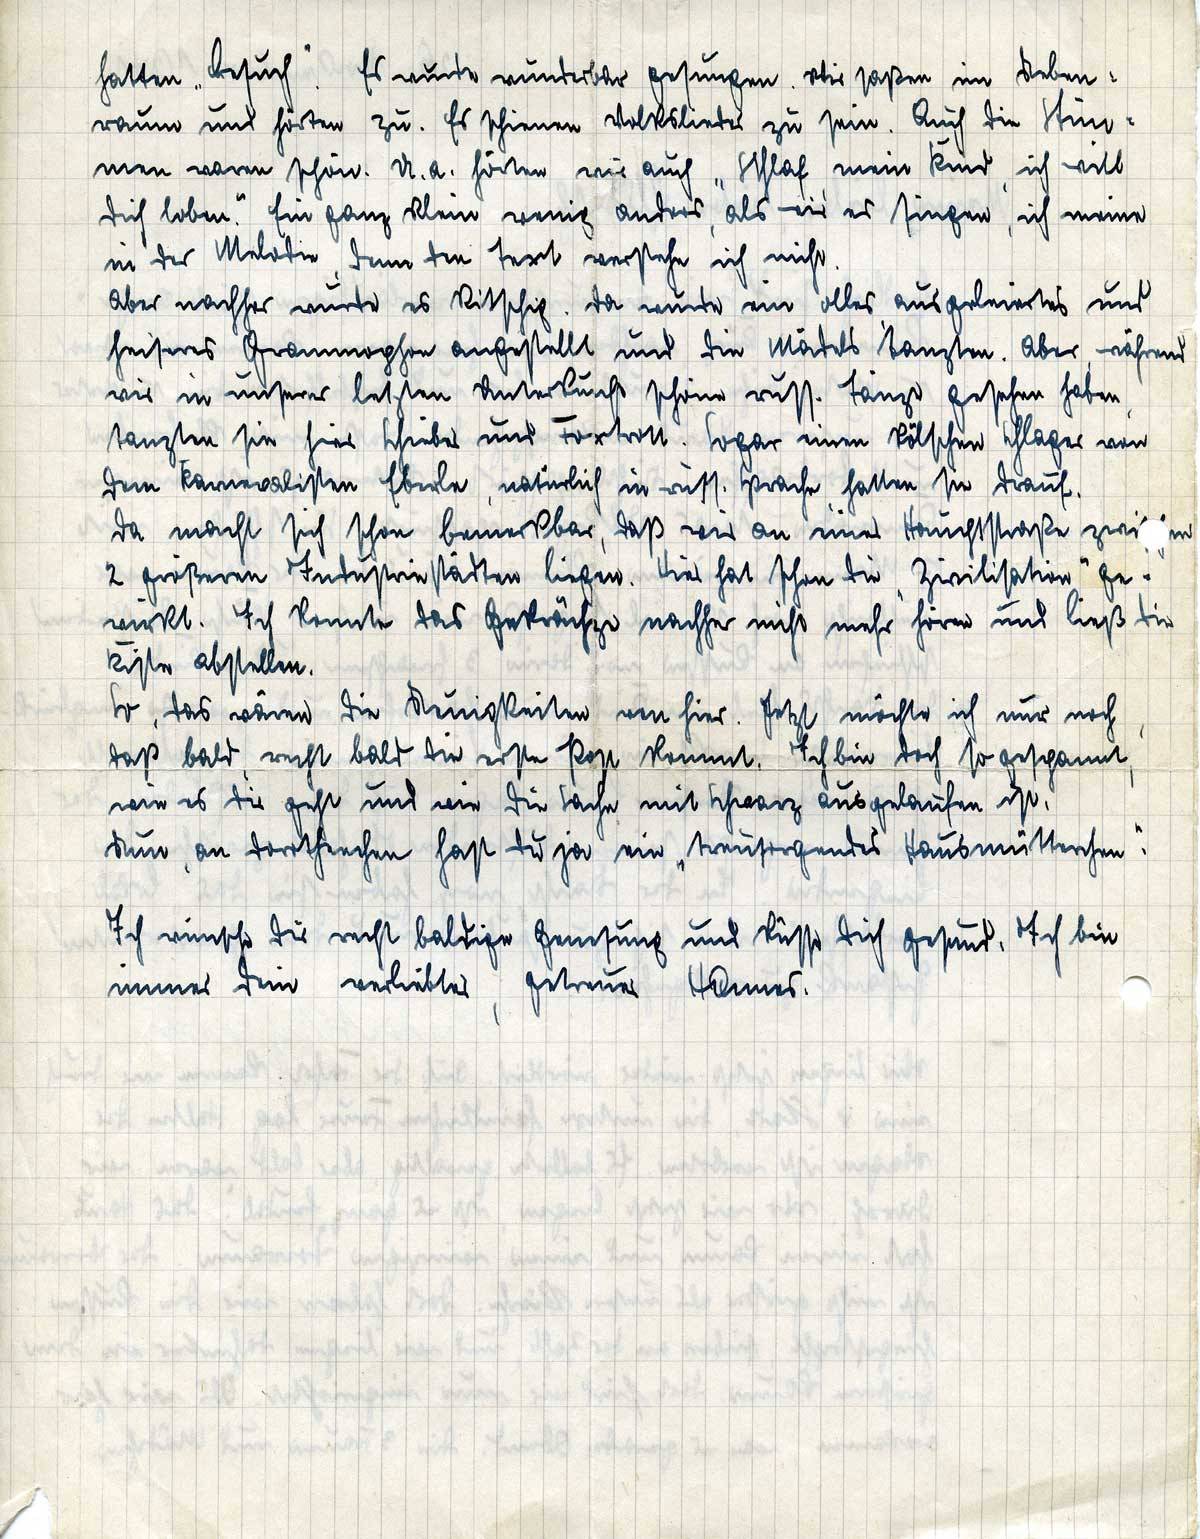 hatten „Besuch“. Es wurde wunderbar gesungen. Wir saßen im Neben-
raum und hörten zu. Es schienen Volkslieder zu sein. Auch die Stim-
men waren schön. U.a. hörten wir auch „Schlaf, mein Kind, ich will
dich loben.“ Ein ganz klein wenig anders, als wir es singen, ich meine
in der Melodie, denn den Text verstehe ich nicht.
Aber nachher wurde es kitschig. Da wurde ein olles, ausgeleiertes und
heiseres Grammophon angestellt und die Mädels tanzten. Aber, während
wir in unserer letzten Unterkunft schöne russ. Tänze gesehen haben,
tanzten sie hier Schieber und Foxtrott. Sogar einen kölschen Schlager von
dem Karnevalisten Eberle, natürlich in russ. Sprache, hatten sie drauf.
Da macht sich schon bemerkbar, daß wir an einer Hauptstraße zwischen
2 größeren Industriestädten liegen. Hier hat schon die „Zivilisation“ ge-
wirkt. Ich konnte das Gekrächze nachher nicht mehr hören und ließ die
Kiste abstellen.
So, das wären die Neuigkeiten von hier. Jetzt möchte ich nur noch,
daß bald, recht bald die erste Post kommt. Ich bin doch so gespannt,
wie es dir geht und wie die Sache mit Schwarz ausgelaufen ist.
Nun, an Dorotheechen hast du ja ein „treusorgendes Hausmütterchen“.
Ich wünsche dir recht baldige Genesung und küsse dich gesund. Ich bin
immer dein verliebter, getreuer Hannes.